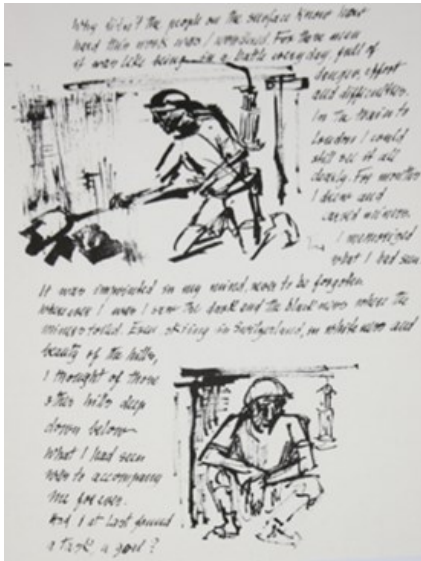 Why didn't the people on the surface know how
hard this work was I wondered. For these men
it was like being in a battle every day, full of
danger, effort
and difficulties.
In the train to
London I could
still see it all
clearly. For months
I drew and
carved miners.
I memorised
what I had seen
It was imprinted in my mind, never to be forgotten
wherever I was I saw the dark and the blackness where the
miners toiled. Even skiing in Switzerland, in whiteness and
beauty of the hills,
I thought of those
other hills deep
down below
What I had seen
was to accompany
me for ever.
Had I at last found
a task, a goal?